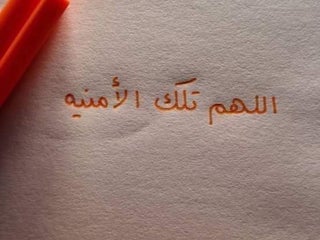 اللهم تلك الأمنيه